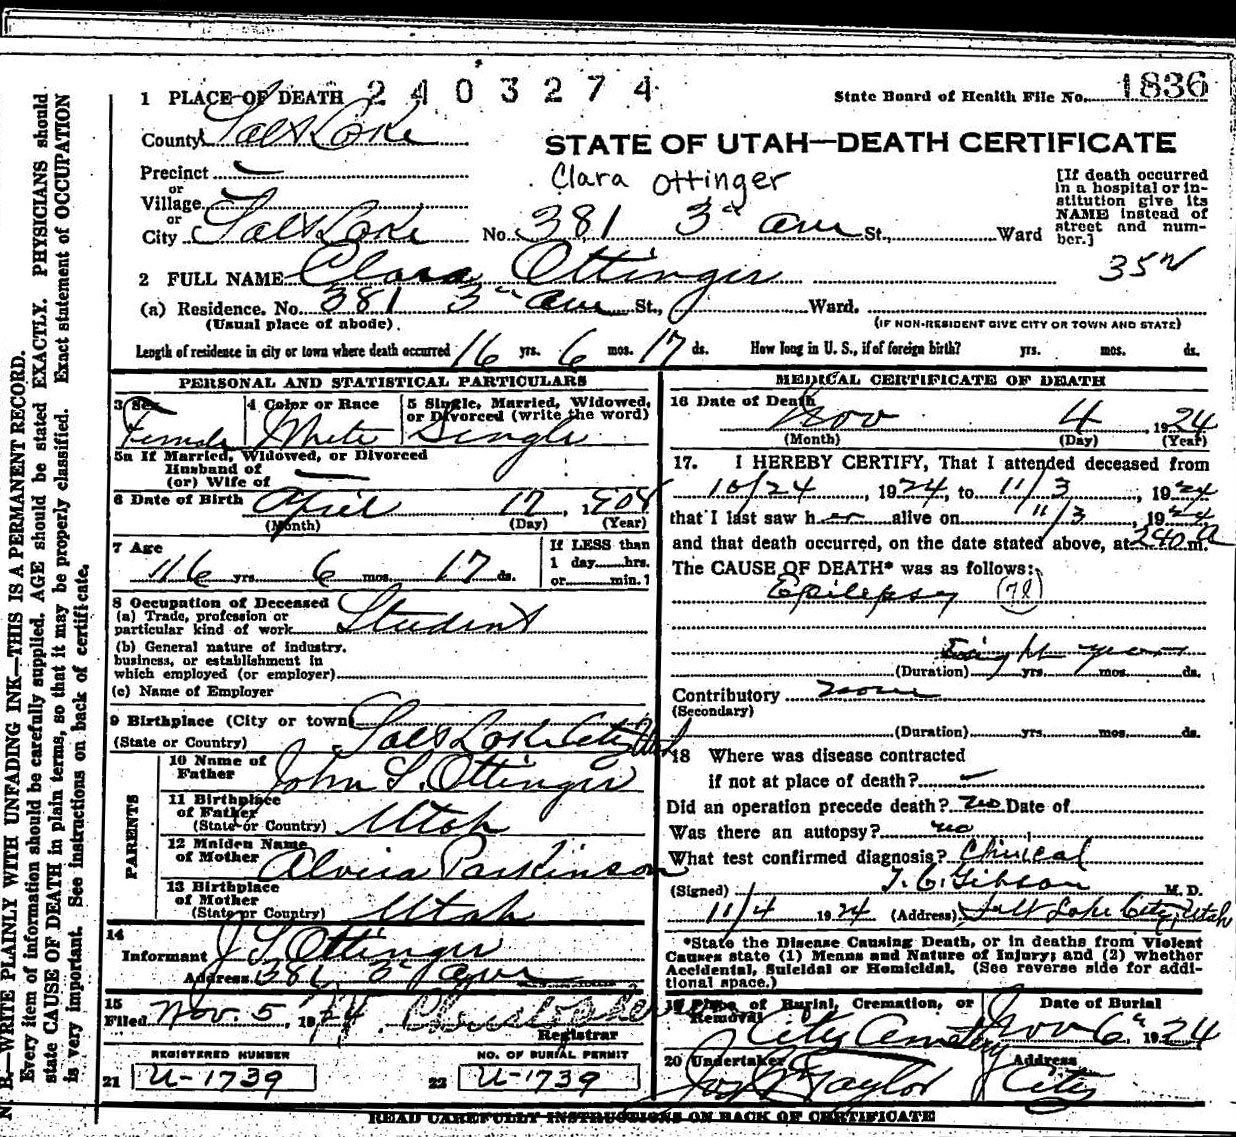 1 PLACE OF DEATH 2403274
State Board of Health File No. 1836
County Salt Lake
STATE OF UTAH—DEATH CERTIFICATE
Precinct
Clara Ottinger
or
Village
or
City Salt Lake No. 381 3d ave St., Ward
[If death occurred
in a hospital or in-
stitution give its
NAME instead of
street and num-
ber.]
2 FULL NAME Clara Ottinger
(a) Residence. No. 381 3d ave St., Ward.
(Usual place of abode)
(IF NON-RESIDENT GIVE CITY OR TOWN AND STATE)
Length of residence in city or town where death occurred 16 yrs. 6 mos. 17 ds. How long in U. S., if of foreign birth? yrs. mos. ds.
PERSONAL AND STATISTICAL PARTICULARS
3 Sex
Female
4 Color or Race
White
5 Single, Married, Widowed,
or Divorced (write the word)
Single
5a If Married, Widowed, or Divorced
Husband of
(or) Wife of
6 Date of Birth April 17, 1908
(Month) (Day) (Year)
7 Age
16 yrs. 6 mos. 17 ds.
If LESS than
1 day hrs.
or min.
8 Occupation of Deceased
(a) Trade, profession or
particular kind of work Student
(b) General nature of industry,
business, or establishment in
which employed (or employer)
(c) Name of Employer
9 Birthplace (City or town)
(State or Country) Salt Lake City Utah
PARENTS
10 Name of
Father John L. Ottinger
11 Birthplace
of Father
(State or Country) Utah
12 Maiden Name
of Mother Alvira Parkinson
13 Birthplace
of Mother
(State or Country) Utah
14
Informant J L Ottinger
Address 381 3d ave
15
Filed Nov. 5, 1924
Registrar
REGISTERED NUMBER
21 U-1739
NO. OF BURIAL PERMIT
22 U-1739
MEDICAL CERTIFICATE OF DEATH
16 Date of Death
Nov 4, 1924
(Month) (Day) (Year)
17. I HEREBY CERTIFY, That I attended deceased from
10/24, 1924, to 11/3, 1924
that I last saw her alive on 11/3, 1924
and that death occurred, on the date stated above, at 240 a m.
The CAUSE OF DEATH* was as follows:
Epilepsy
Eight years
(Duration) yrs. mos. ds.
Contributory none
(Secondary)
(Duration) yrs. mos. ds.
18 Where was disease contracted
if not at place of death?
Did an operation precede death? no Date of
Was there an autopsy? no
What test confirmed diagnosis? Clinical
(Signed) T. C. Gibson M. D.
11/4 1924 (Address) Salt Lake City, Utah
*State the Disease Causing Death, or in deaths from Violent
Causes state (1) Means and Nature of Injury; and (2) whether
Accidental, Suicidal or Homicidal. (See reverse side for addi-
tional space.)
19 Place of Burial, Cremation, or
Removal
City Cemetery
Date of Burial
Nov 6, 1924
20 Undertaker
Jos Wm Taylor
Address
City
READ CAREFULLY INSTRUCTIONS ON BACK OF CERTIFICATE
N. B.—WRITE PLAINLY WITH UNFADING INK—THIS IS A PERMANENT RECORD.
Every item of information should be carefully supplied. AGE should be stated EXACTLY. PHYSICIANS should
state CAUSE OF DEATH in plain terms, so that it may be properly classified. Exact statement of OCCUPATION
is very important. See instructions on back of certificate.